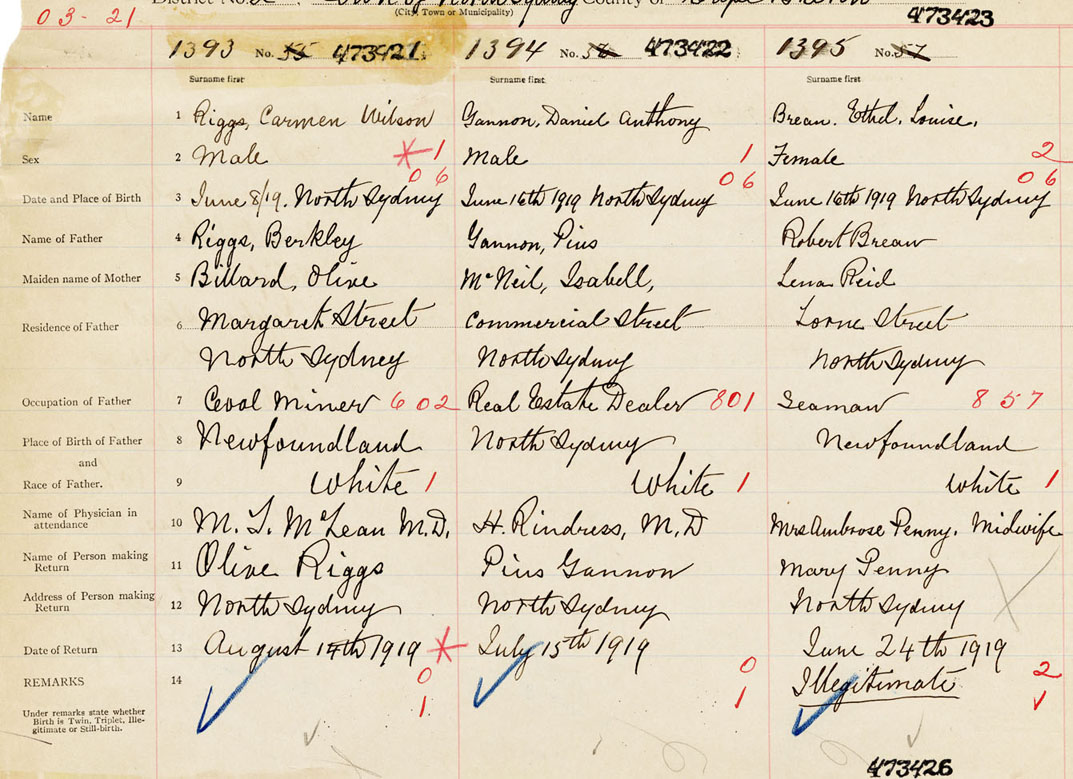 03-21
District No. Town of North Sydney County of Cape Breton
(City, Town or Municipality)
473423
1393 No. 55 473421 1394 No. 56 473422 1395 No. 57
Surname first Surname first Surname first
Name 1 Riggs, Carmen Wilson Gannon, Daniel Anthony Brean. Ethel, Louise,
Sex 2 Male 1 Male 1 Female 2
06 06 06
Date and Place of Birth 3 June 8/19. North Sydney June 16th 1919 North Sydney June 16th 1919 North Sydney
Name of Father 4 Riggs, Berkley Gannon, Pius Robert Brean
Maiden name of Mother 5 Billard, Olive McNeil, Isabell, Lena Reid
Residence of Father 6 Margaret Street Commercial Street Lorne Street
North Sydney North Sydney North Sydney
Occupation of Father 7 Coal Miner 602 Real Estate Dealer 801 Seaman 857
Place of Birth of Father 8 Newfoundland North Sydney Newfoundland
and
Race of Father. 9 White 1 White 1 White 1
Name of Physician in attendance 10 M. T. McLean M.D. H. Rindress, M.D Mrs Ambrose Penny. Midwife
Name of Person making Return 11 Olive Riggs Pius Gannon Mary Penny
Address of Person making Return 12 North Sydney North Sydney North Sydney
Date of Return 13 August 14th 1919 July 15th 1919 June 24th 1919
REMARKS 14 0 0 Illegitimate 2
Under remarks state whether
Birth is Twin, Triplet, Ille-
gitimate or Still-birth.
1 1 1
473426